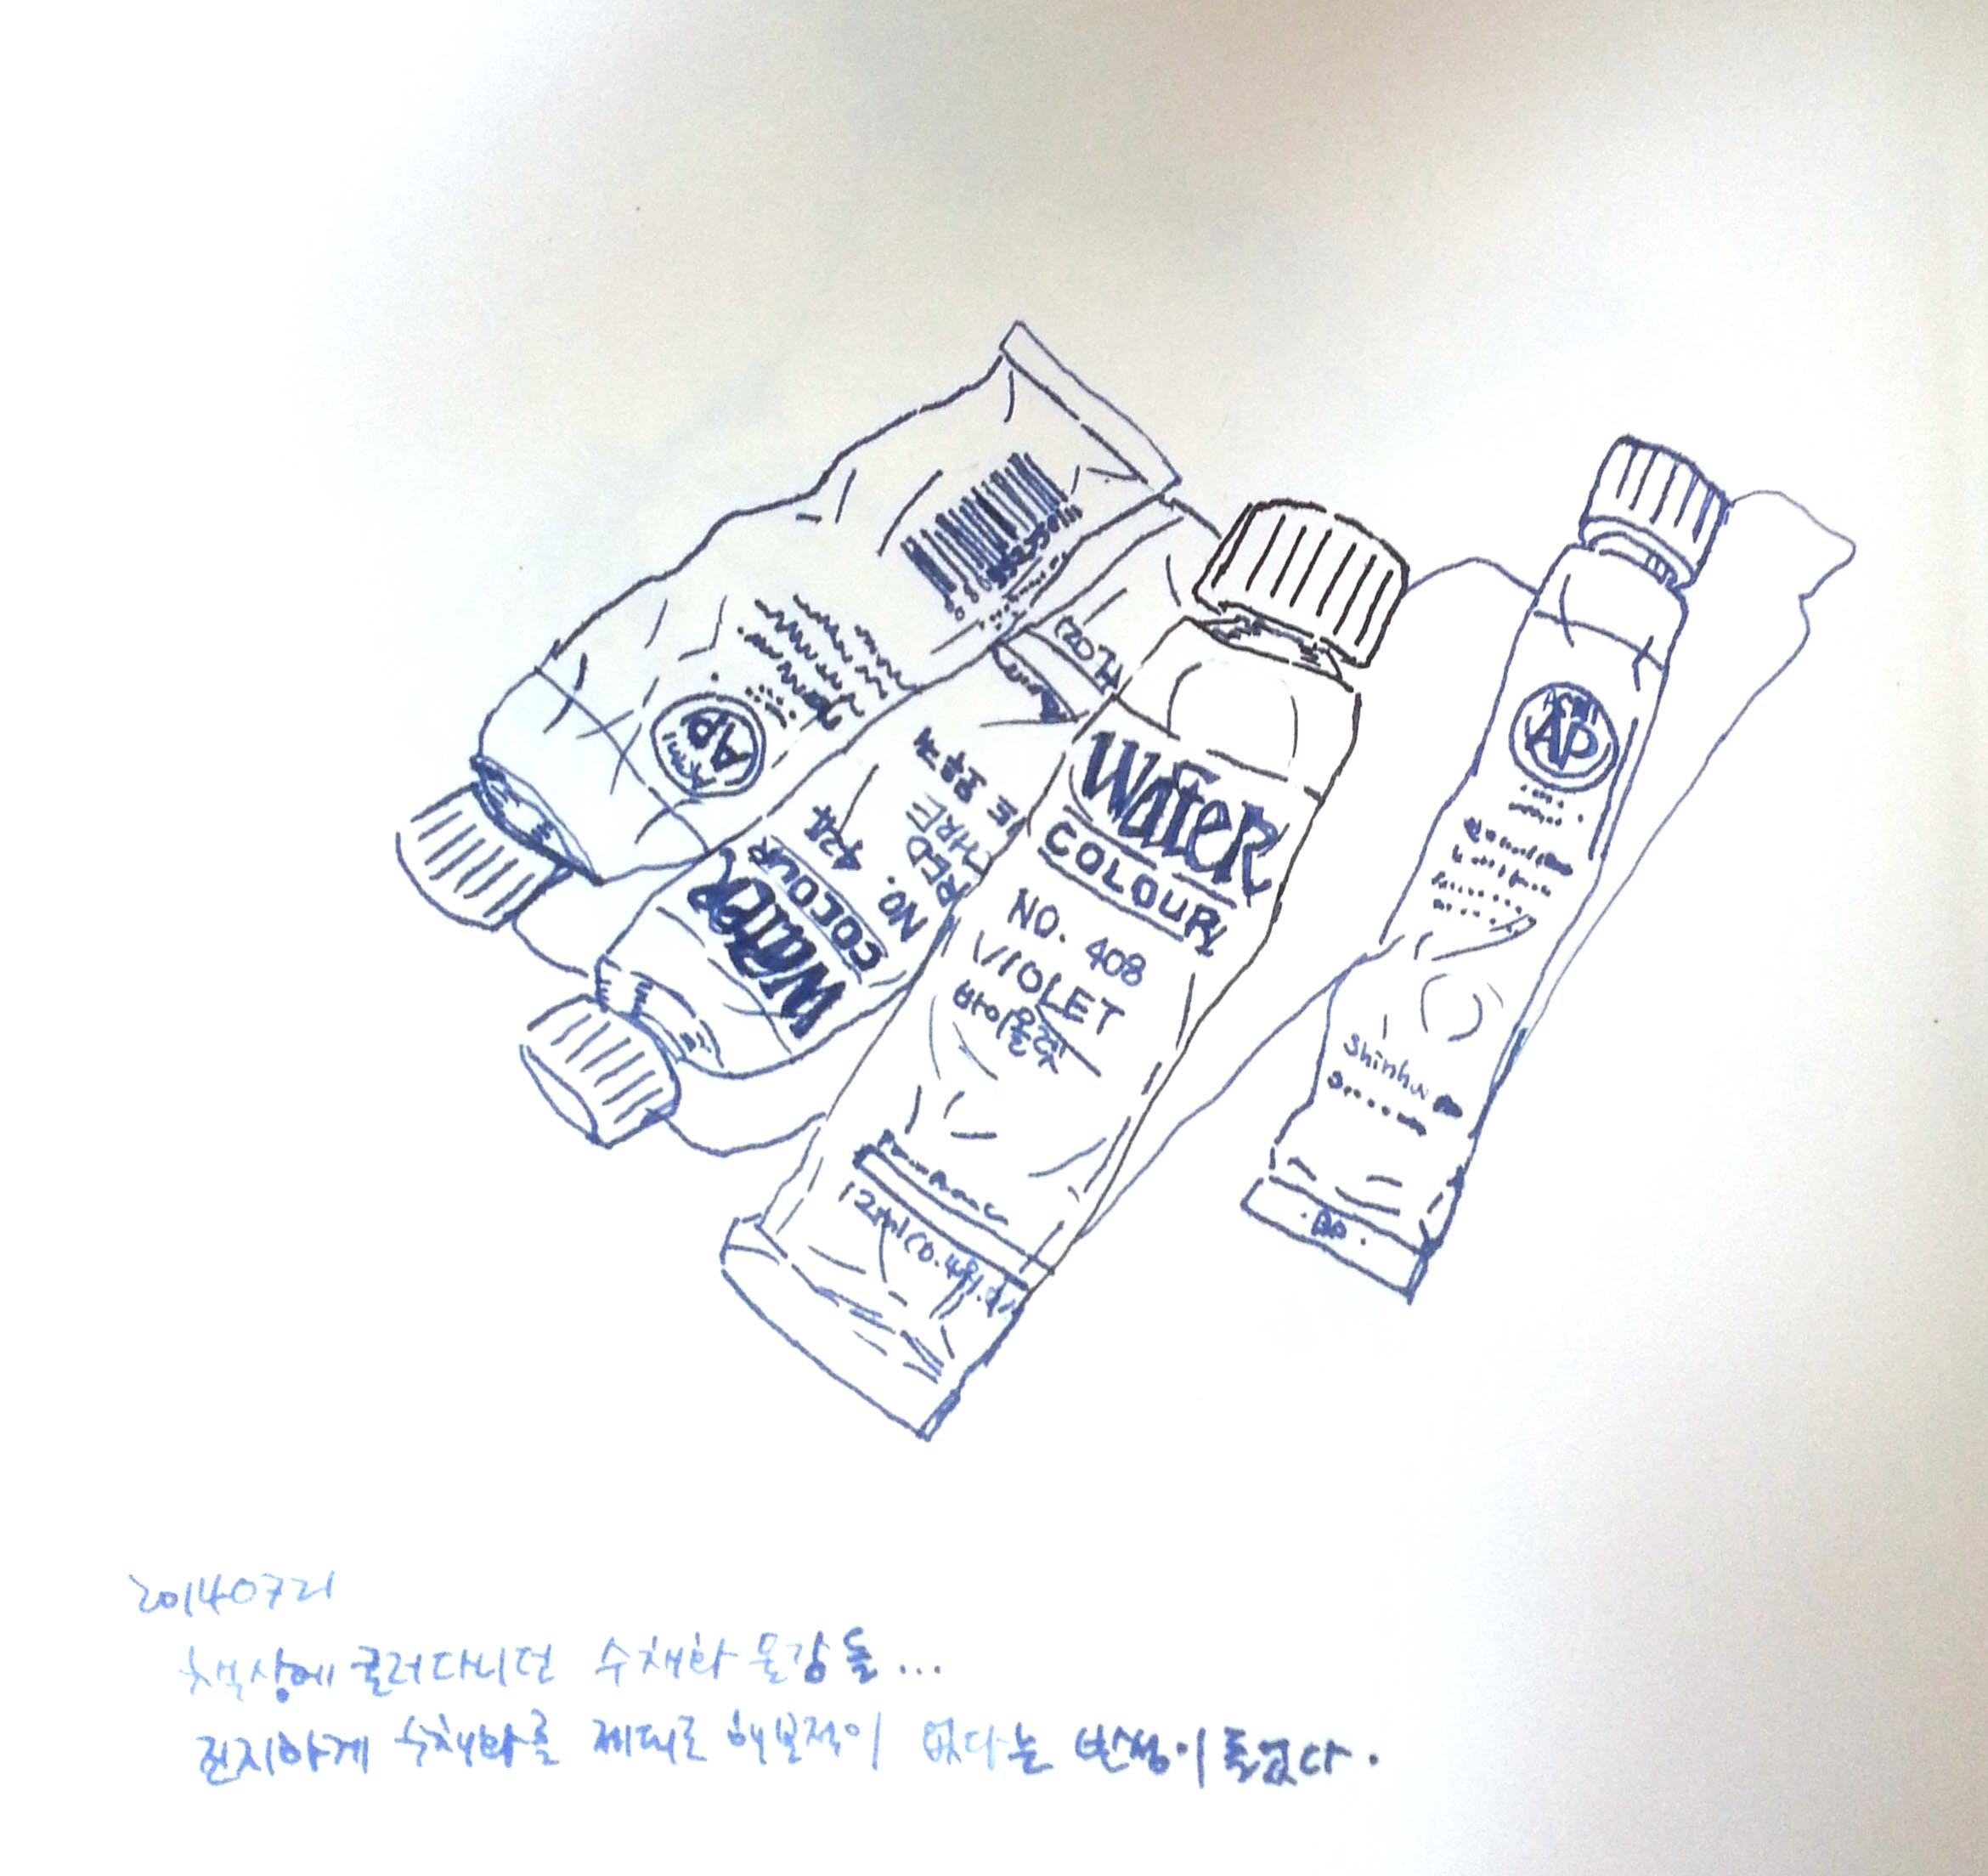 AP
NO. 424
RED
Water
COLOUR
Water
COLOUR
NO. 408
VIOLET
바이올렛
12ml(0.4fl.
AP
Shinha
20140721
책상에 굴러다니던 수채화 물감들...
진지하게 수채화를 제대로 해본적이 없다는 반성이 들었다.